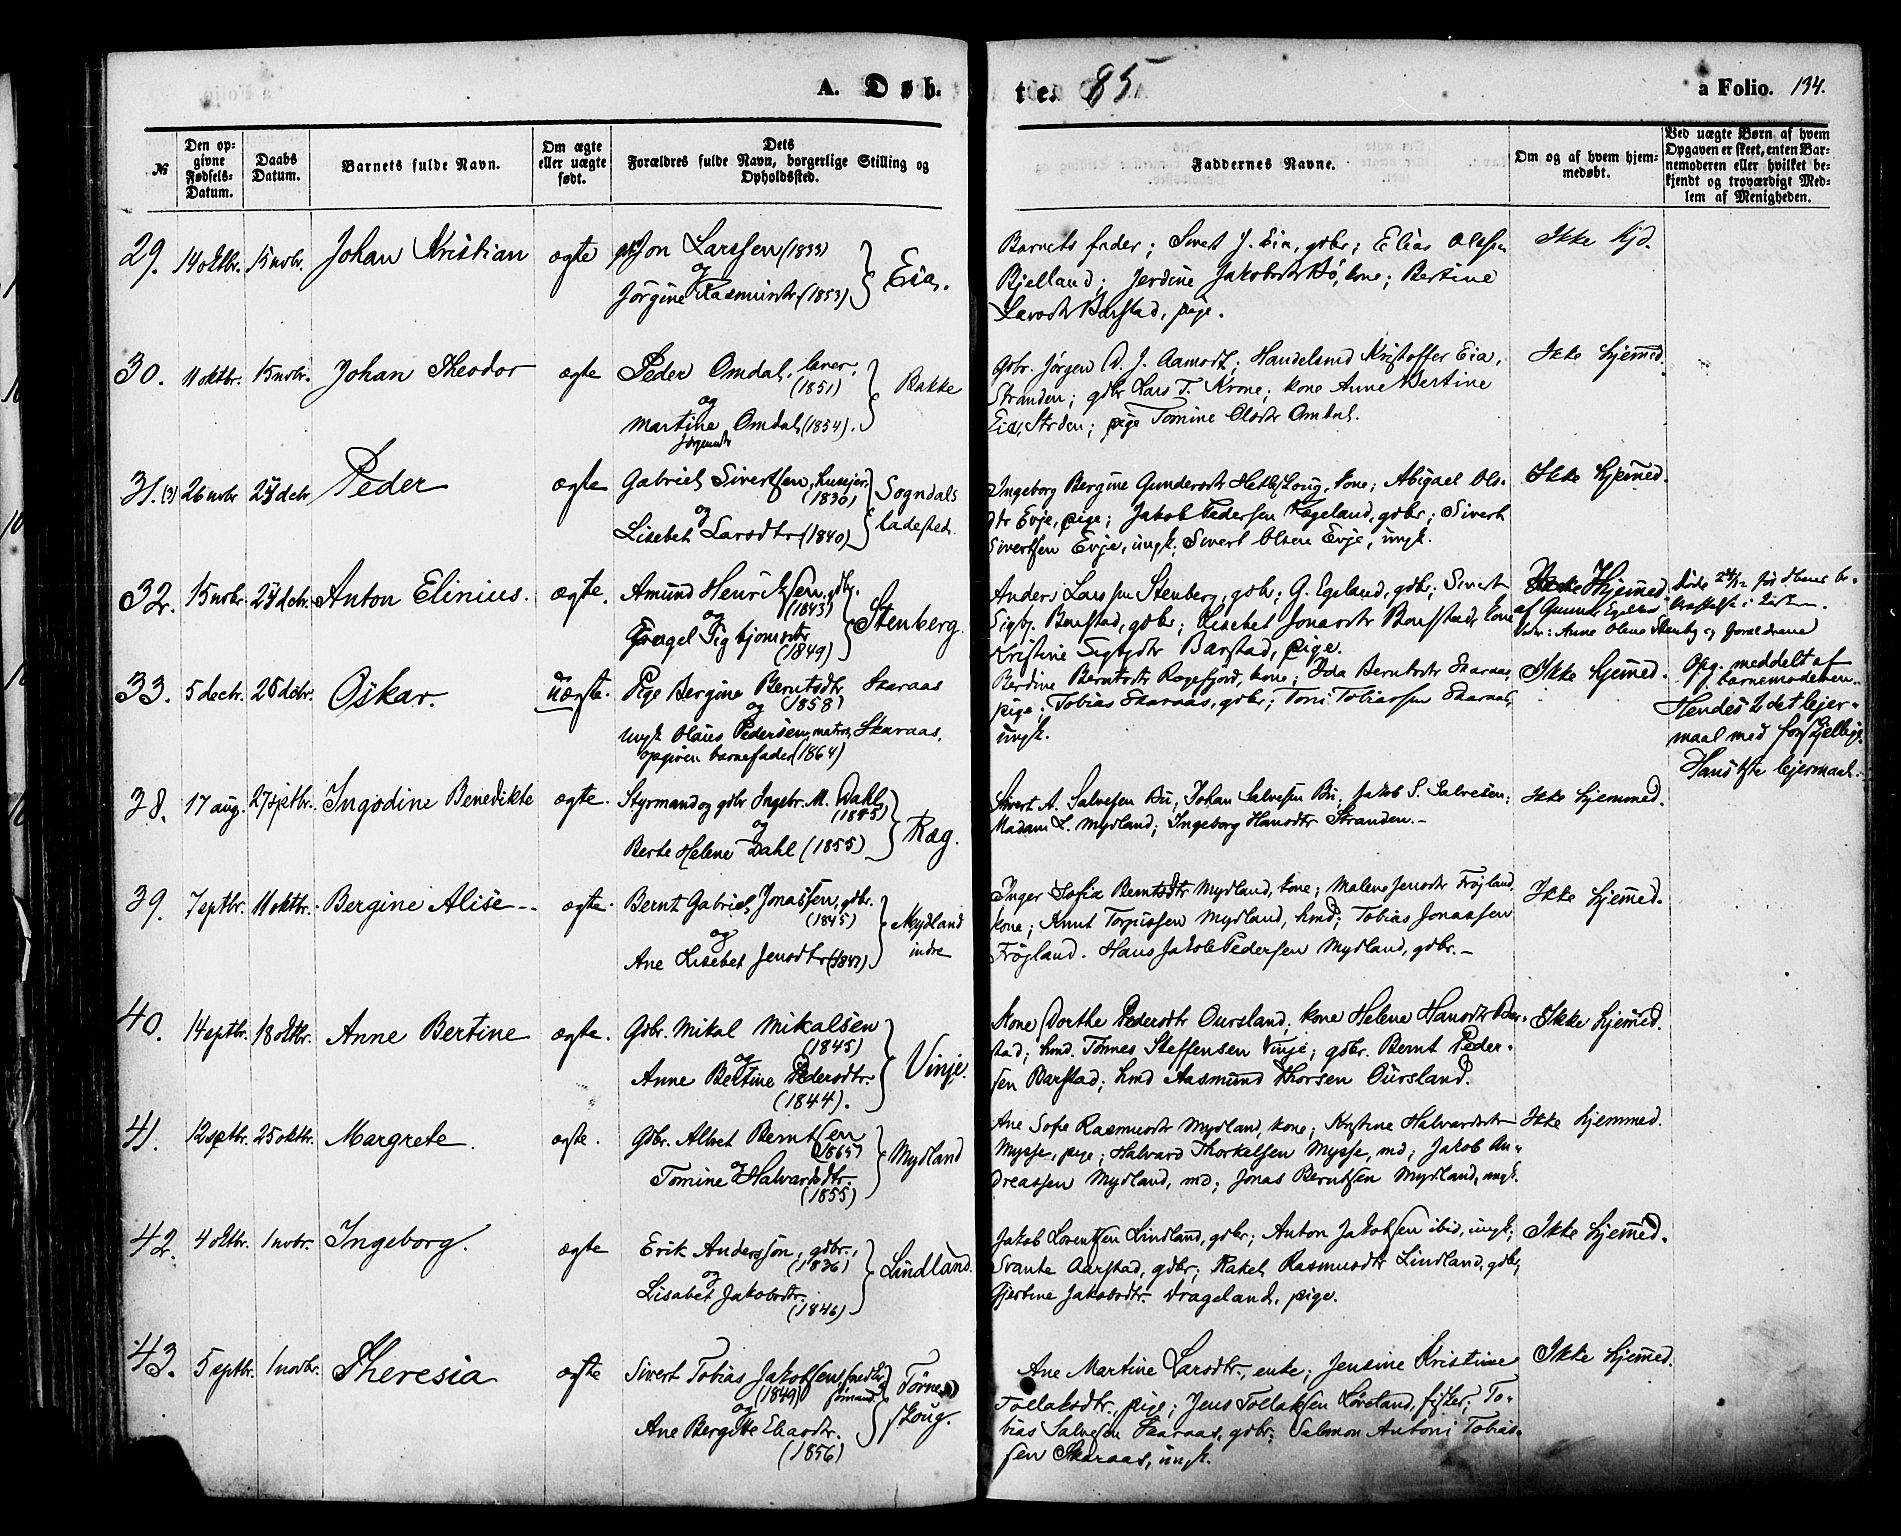 A. Døb-
te. 85
a Folio. 134.
№
Den op-
givne
Fødsels-
Datum.
Daabs
Datum.
Barnets fulde Navn.
Om ægte
eller uægte
født.
Dets
Forældres fulde Navn, borgerlige Stilling og
Opholdssted.
Faddernes Navne.
Om og af hvem hjem-
medøbt.
Ved uægte Børn af hvem
Opgaven er skeet, enten Bar-
nemoderen eller hvilket be-
kjendt og troværdigt Med-
lem af Menigheden.
29. 14 oktbr. 15 novbr. Johan Kristian ægte Jon Larssen (1833)
og
Jørgine Rasmusdtr (1853) Eia.
Barnets fader; Sivert J. Eia, gdbr; Elias Olssen
Bjelland; Jerdine Jakobsdtr Bø, kone; Bertine
Larsdtr Barstad, pige.
Ikke hjd.
30. 11 oktbr. 15 novbr. Johan Theodor ægte Peder Omdal, lærer,
(1851)
og
Martine Omdal (1854).
Jørgensdtr
Bakke
Gdbr. Jørgen J. Aamodt; Handelsmd Kristoffer Eia,
Stranden; gdbr Lars T. Krone; kone Anne Bertine
Eia, Strden; pige Tomine Olsdtr Omdal.
Ikke hjemmed.
31. (3) 26 novbr 27 decbr Peder ægte Gabriel Sivertsen, husejer.
(1830)
og
Lisebet Larsdtr (1840)
Sogndals
ladested.
Ingeborg Bergine Gundersdtr kone; Abigael Ols-
dtr Evje, pige; Jakob Pedersen Rægeland, gdbr; Sivert
Sivertsen Evje, ungk; Sivert Olsen Evje, ungk.
Ikke hjemmed.
32. 15 novbr. 27 decbr. Anton Elinius. ægte. Amund Henriksen, gdbr.
(1843)
og
Sigbjørnsdtr
(1849)
Stenberg.
Anders Larssen Stenberg, gdbr; G. Egeland, gdbr; Sivert
Sigbj. Barstad, gdbr; Lisebet Jonasdtr Barstad, kone
Kristine Sigbjdtr Barstad, pige.
Hjemmed
af Gunder Egeland
Vidn: Anne Olene Stenbg og Forældrene
Døde 24/12 før dens be-
kræftelse i kirken.
33. 5 decbr. 26 decbr. Oskar. uægte. Pige Bergine Berntsdtr Skaraas
(1858)
og
Ungk Olaus Pedersen, matros, Skaraas,
opgiven barnefader (1864)
Berdine Berntsdtr Rægefjord, kone; Ida Berntsdtr Skaraas,
pige; Tobias Skaraas, gdbr; Toni Tobiassen Skaraas,
ungk.
Ikke hjemmed.
Opg. meddelt af
barnemoderen.
Hendes 2det lejer-
maal med forskjellige.
Hans 1ste lejermaal.
38. 17 aug. 27 septbr. Ingodine Benedikte ægte. Styrmand og gdbr Ingebr. M. Dahl
(1845)
og
Berte Helene Dahl (1855)
Ræg.
Sivert A. Salvesen Bu; Johan Salvesen Bu; Jakob S. Salvesen;
Madam L. Mydland; Ingeborg Hansdtr Stranden.-
Ikke hjemmed.
39. 7 septbr. 11 oktbr. Bergine Alise-- ægte. Bernt Gabriel Jonassen, gdbr.
(1845)
og
Ane Lisebet Jensdtr (1847)
Mydland
indre
Inger Sofia Berntsdtr Mydland, kone; Malene Jensdtr Frøjland,
kone; Knut Torgussen Mydland, hmd; Tobias Jonassen
Frøjland. Hans Jakob Pedersen Mydland, gdbr.-
Ikke hjemmed.
40. 14 septbr. 18 oktbr. Anne Bertine ægte. Gdbr. Mikal Mikalsen
(1845)
og
Anne Bertine Pedersdtr.
(1844).
Vinje.
Kone Dorthe Pedersdtr Oursland; kone Helene Hansdtr Bar-
stad; hmd. Tønnes Steffensen Vinje; gdbr. Bernt Peder-
sen Barstad; hmd Aasmund Thorsen Oursland.
Ikke hjemmed.
41. 12 septbr. 25 oktbr. Margrete. ægte. Gdbr. Albert Berntsen
og
Tomine Halvarsdtr.
(1855)
Mydland
Ane Sofie Rasmusdtr Mydland, kone; Kristine Halvardsdtr
Mysse, pige; Halvard Thorkelsen Mysse, md; Jakob An-
dreassen Mydland, md; Jonas Berntsen Mydland, ungk.
Ikke hjemmed.
42. 4 oktbr. 1 novbr. Ingeborg. ægte Erik Anderssøn, gdbr.,
(1836)
og
Lisabet Jakobsdtr.
(1846)
Lindland.
Jakob Lorentsen Lindland, gdbr; Anton Jakobsen ibid, ungk;
Svante Aarstad, gdbr; Rakel Rasmusdtr Lindland, gdbr;
Gjertine Jakobsdtr. Drageland, pige.
Ikke hjemmed.
43. 5 septbr. 1 novbr. Theresia ægte Sivert Tobias Jakobsen,
(1849) sømand.
og
Ane Bergitte Eliasdtr.
(1856)
Tørne-
skoug.
Ane Martine Larsdtr., enke; Jensine Kristine
Tollaksdtr., pige; Jens Tollaksen Løvsland, fisker; To-
bias Salvesen Skaraas, gdbr; Salmon Antoni Tobias-
sen Skaraas, ungk.
Ikke hjemmed.